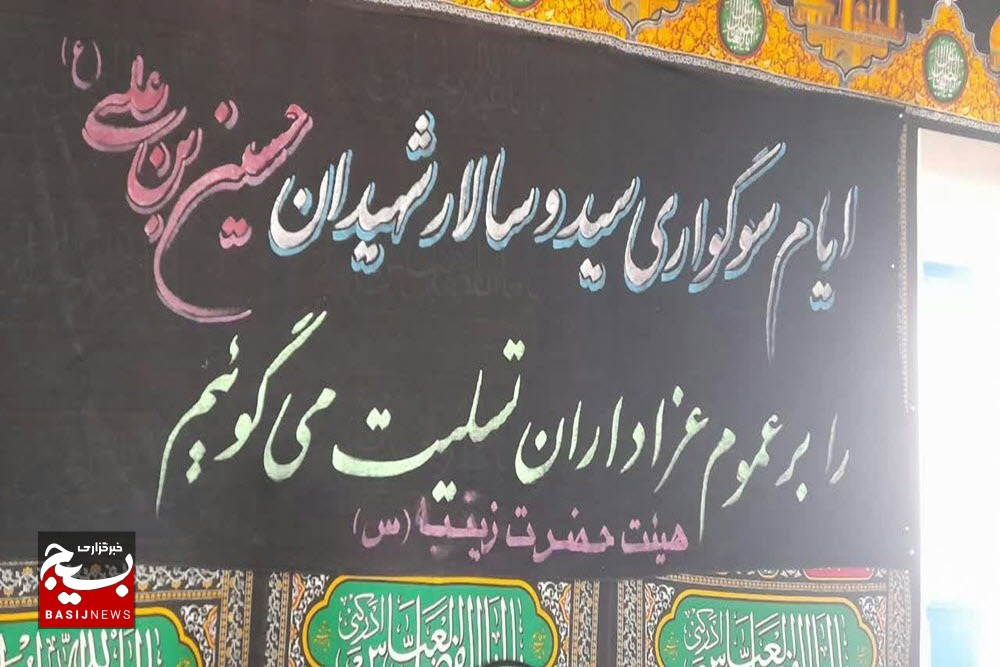 ایام سوگواری سید و سالار شهیدان حسین بن علی (ع)
را بر عموم عزاداران تسلیت می گوئیم
هیئت حضرت زینب (س)
خبرگزاری
بسیج
BASIJNEWS
یا ابالفضل العباس ادرکنی
یا ابالفضل العباس ادرکنی